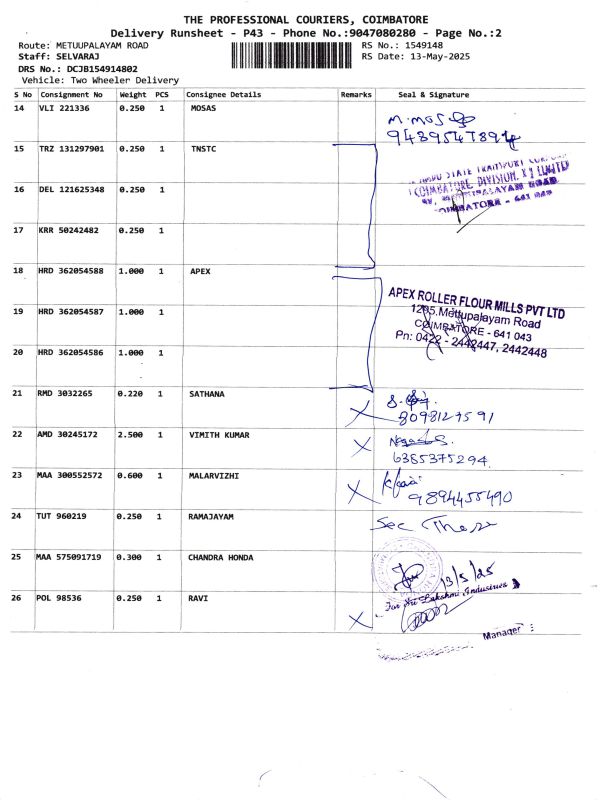 THE PROFESSIONAL COURIERS, COIMBATORE
Delivery Runsheet - P43 - Phone No.:9047080280 - Page No.:2
Route: METUUPALAYAM ROAD RS No.: 1549148
Staff: SELVARAJ RS Date: 13-May-2025
DRS No.: DCJB154914802
Vehicle: Two Wheeler Delivery
S No Consignment No Weight PCS Consignee Details Remarks Seal & Signature
14 VLI 221336 0.250 1 MOSAS
15 TRZ 131297901 0.250 1 TNSTC
16 DEL 121625348 0.250 1
COIMBATORE - 641
17 KRR 50242482 0.250 1
18 HRD 362054588 1.000 1 APEX
APEX ROLLER FLOUR MILLS PVT LTD
19 HRD 362054587 1.000 1
1285, Mettupalayam Road
COIMBATORE - 641 043
Pn: 0422 - 2442447, 2442448
20 HRD 362054586 1.000 1
21 RMD 3032265 0.220 1 SATHANA
8098127591
22 AMD 30245172 2.500 1 VIMITH KUMAR
6385375294
23 MAA 300552572 0.600 1 MALARVIZHI
9894455490
24 TUT 960219 0.250 1 RAMAJAYAM
25 MAA 575091719 0.300 1 CHANDRA HONDA
13/5/25
For Sri Lakshmi Industries
26 POL 98536 0.250 1 RAVI
Manager